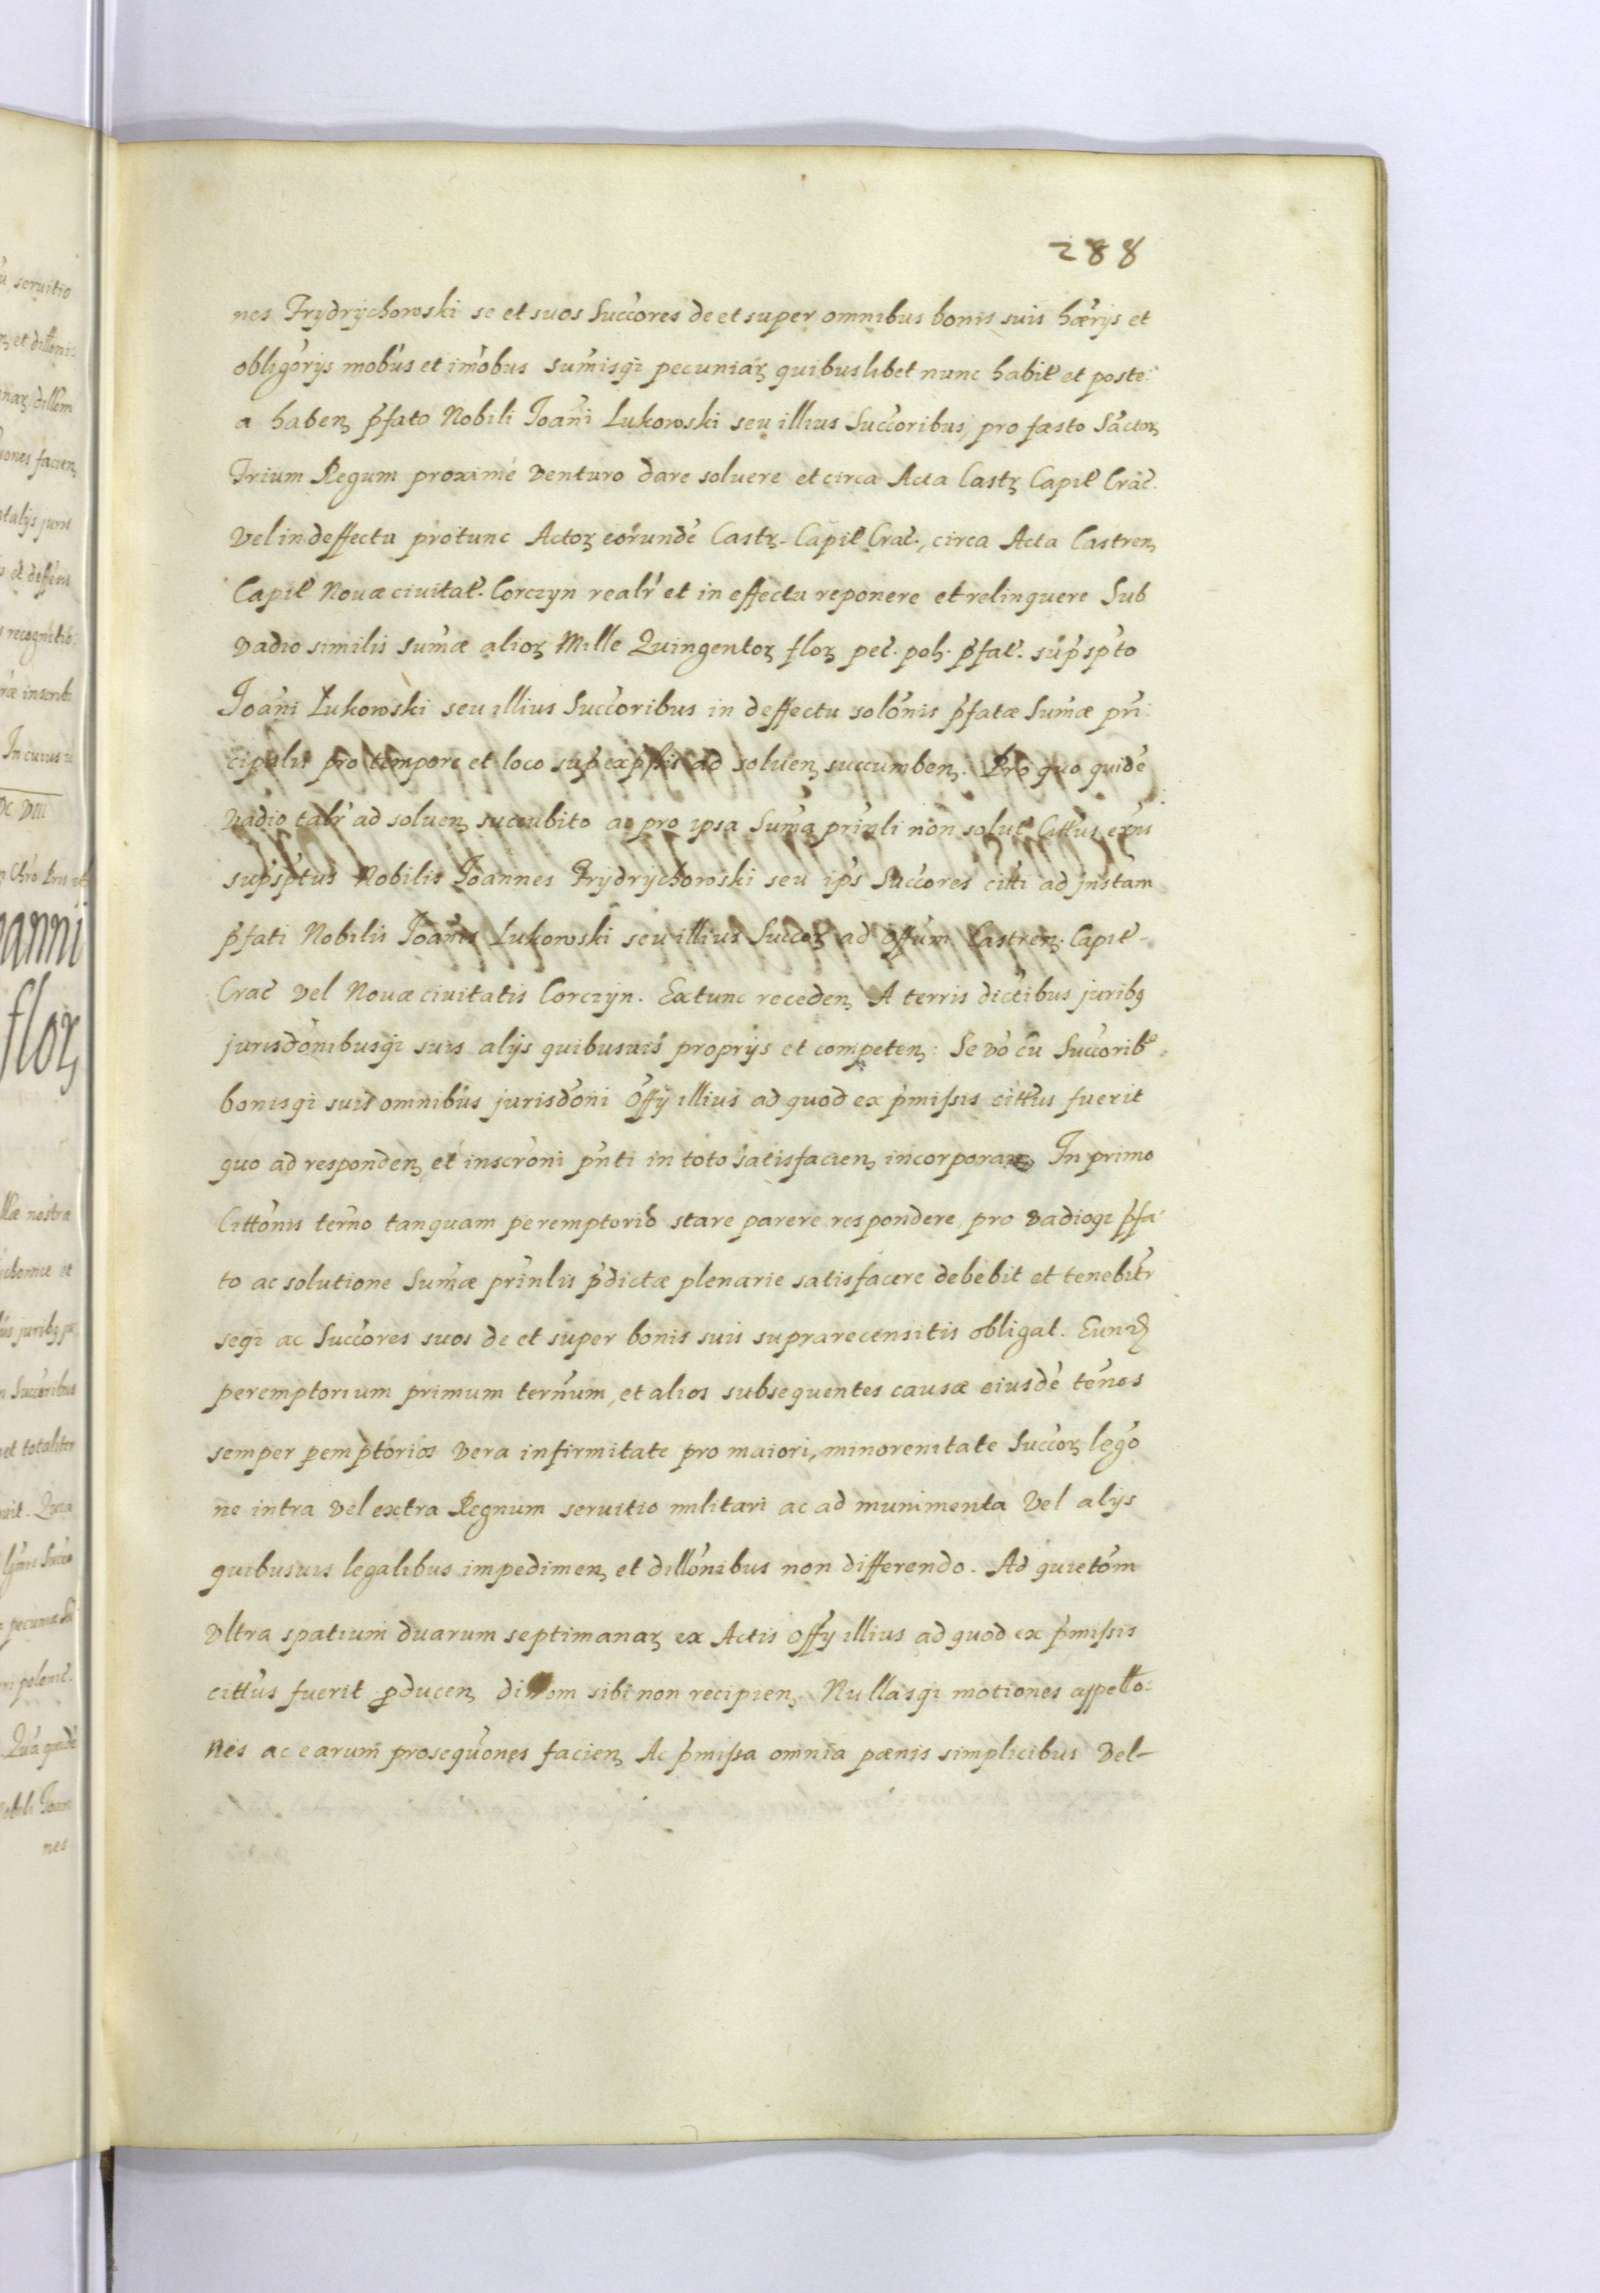 288
nes Frydrychowski se et suos Succores de et super omnibus bonis suis hærijs et
obligorijs mobus et imobus sumisq3 pecuniaꝝ quibuslibet nunc habit et poste:
a habenꝫ pfato Nobili Joani Lukowski seu illius Succoribus, pro fæsto Sactoꝝ
Trium Regum proximé Venturo dare soluere et circa Acta Castꝝ Capit Crac.
Vel in deffectu protunc Actoꝝ eorunde Castꝝ Capit Crac., circa Acta Castrenꝫ
Capit Nouæ ciuitat. Corczyn realr et in effectu reponere et relinquere Sub
Vadio similis sumæ alioꝝ Mille Quingentoꝝ floꝝ pec. poł. pfat. supspto
Joani Lukowski seu illius Succoribus in deffectu solonis pfatæ Sumæ pri
cipalis pro tempore et loco supexpssis ad soluenꝫ succumbenꝫ. Pro quo quide
Vadio talr ad soluenꝫ succubito ac pro ipsa Suma prinli non solut Cittus exns
supsptus Nobilis Joannes Frydrychowski seu ips Succores citti ad jnstam
pfati Nobilis Joanis Lukowski seu illius Succoꝝ ad Offum Castrenꝫ Capit
Crac Vel Nouæ ciuitatis Corczyn. Ex tunc recedenꝫ A terris dictibus juribꝫ
jurisdonibusq3 suis alijs quibusuis proprijs et competenꝫ: Se vo cu Succorib
bonisq3 suis omnibus jurisdoni Offy illius ad quod ex pmissis cittus fuerit
quo ad respondenꝫ et inscroni pnti in toto satisfacienꝫ incorporanꝫ In primo
Cittonis termo tanquam peremptorio stare parere respondere pro Vadioq3 pfa
to ac solutione Sumæ prinlis pdictæ plenarie satisfacere debebit et tenebitr
seq3 ac Succores suos de et super bonis suis suprarecensitis obligat. Eundꝫ
peremptorium primum ternum, et alios subsequentes causæ eiusde tenos
semper pemptorios Vera infirmitate pro maiori, minorenitate Succoꝝ lego
ne intra Vel extra Regnum seruitio militari ac ad munimenta Vel alijs
quibusuis legalibus impedimenꝫ et dillonibus non differendo. Ad quietom
Vltra spatium duarum septimanaꝝ ex Actis Offy illius ad quod ex pmissis
cittus fuerit pducenꝫ dillom sibi non recipienꝫ Nullasq3 motiones appello:
nes ac earum prosequones facienꝫ Ac pmissa omnia pœnis simplicibus Vel-